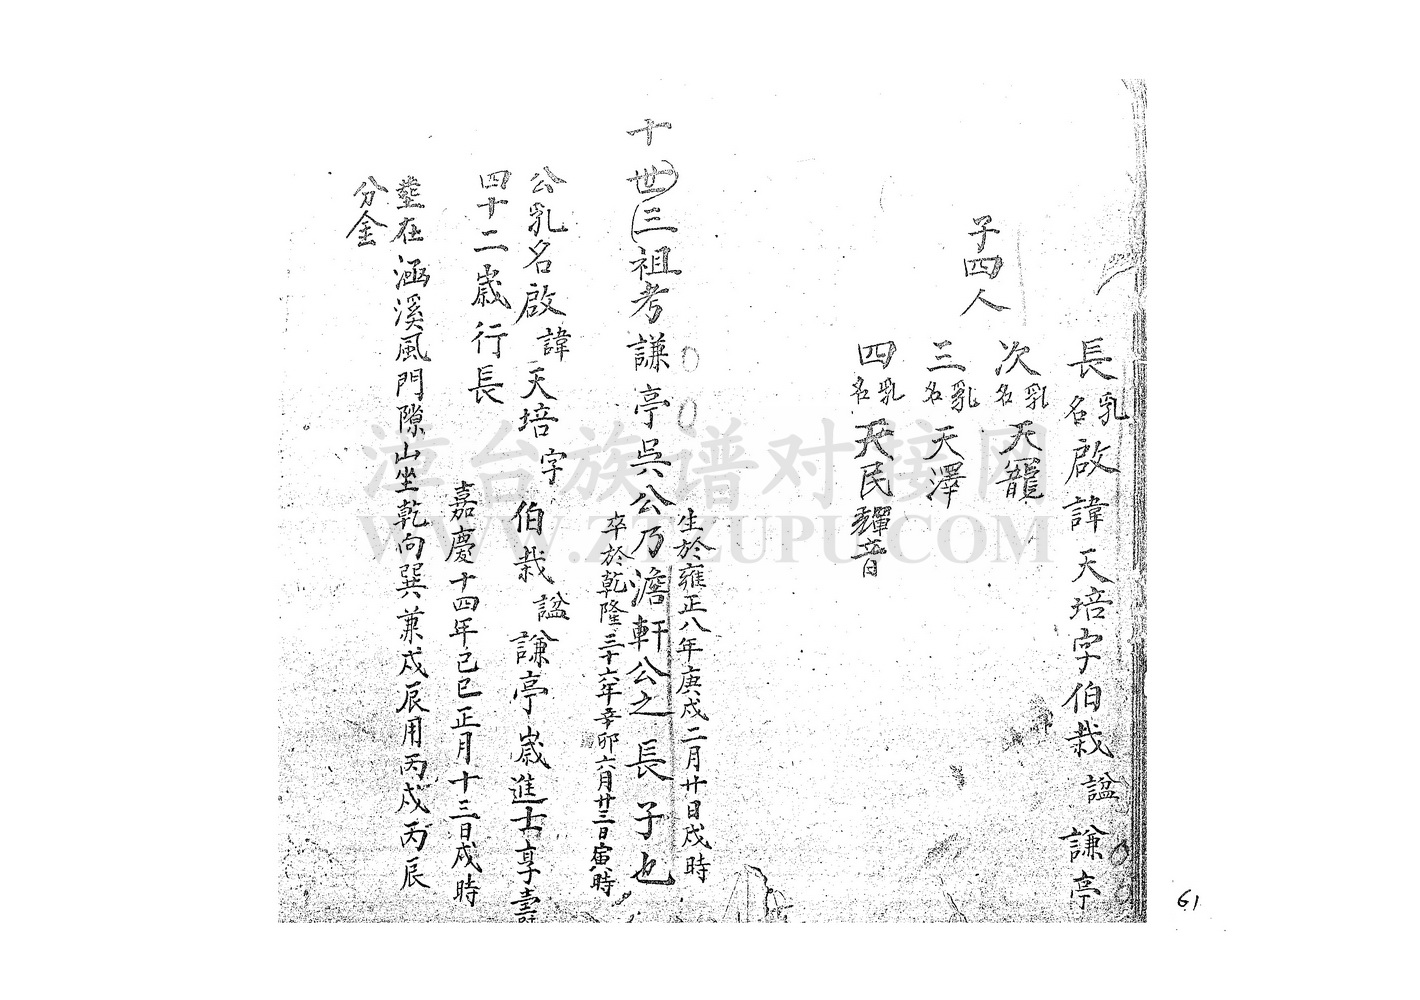 子四人
長乳名啟諱天培字伯栽諡謙亭
次乳名天寵
三乳名天澤
四乳名天民驛音
十世三祖考謙亭吳公乃澹軒公之長子也
生於雍正八年庚戍二月廿日戍時
卒於乾隆三十六年辛卯六月廿三日寅時
公乳名啟諱天培字伯栽諡謙亭歲進士享壽
四十二歲行長
嘉慶十四年己巳正月十三日戍時
塟在涵溪風門隙山坐乾向巽兼戍辰用丙戍丙辰
分金
漳台族谱对接网
WWW.ZTZUPU.COM
61